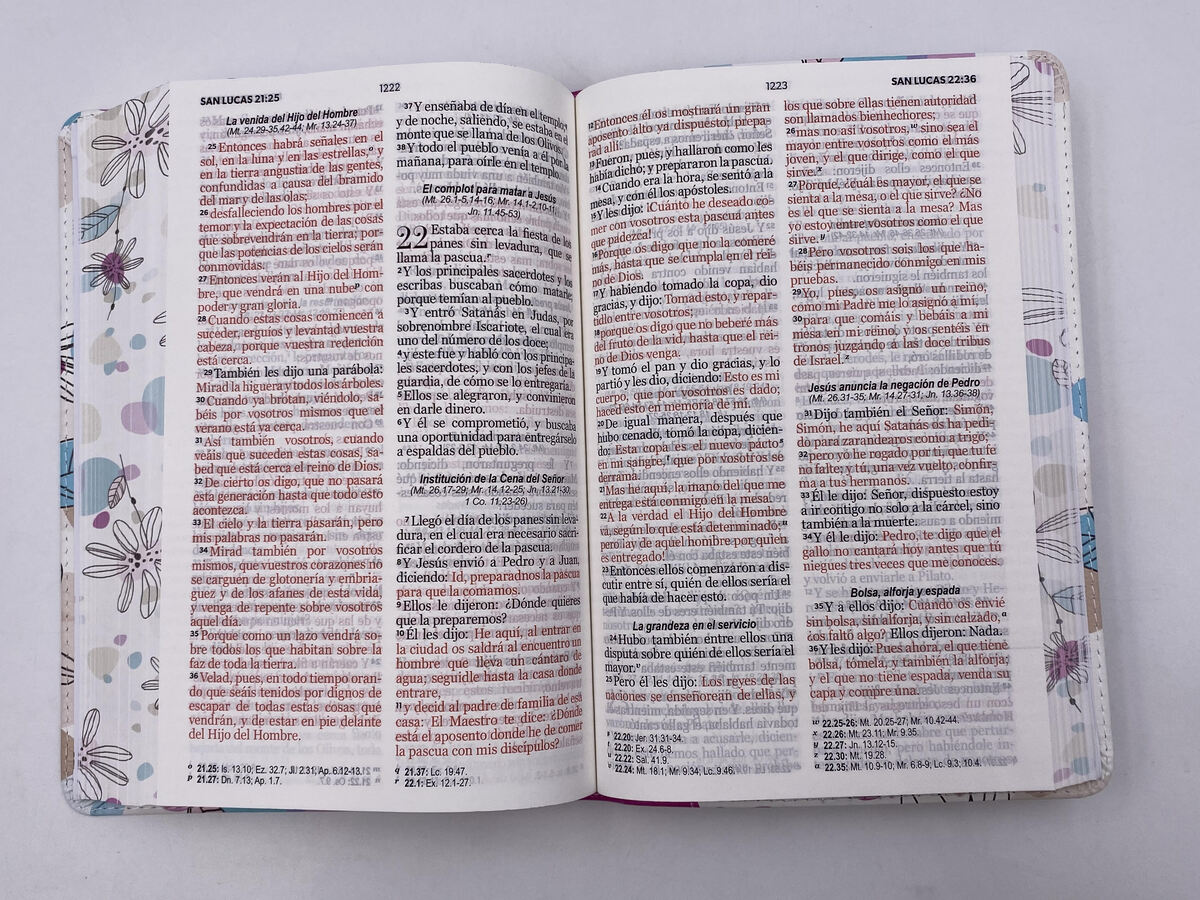 SAN LUCAS 21:25
1222
La venida del Hijo del Hombre
(Mt. 24.29-35,42-44; Mr. 13.24-37)
25 Entonces habrá señales en el
sol, en la luna y en las estrellas,o y
en la tierra angustia de las gentes,
confundidas a causa del bramido
del mar y de las olas;
26 desfalleciendo los hombres por el
temor y la expectación de las cosas
que sobrevendrán en la tierra; por-
que las potencias de los cielos serán
conmovidas.
27 Entonces verán al Hijo del Hom-
bre, que vendrá en una nubep con
poder y gran gloria.
28 Cuando estas cosas comiencen a
suceder, erguíos y levantad vuestra
cabeza, porque vuestra redención
está cerca.
29 También les dijo una parábola:
Mirad la higuera y todos los árboles.
30 Cuando ya brotan, viéndolo, sa-
béis por vosotros mismos que el
verano está ya cerca.
31 Así también vosotros, cuando
veáis que suceden estas cosas, sa-
bed que está cerca el reino de Dios.
32 De cierto os digo, que no pasará
esta generación hasta que todo esto
acontezca.
33 El cielo y la tierra pasarán, pero
mis palabras no pasarán.
34 Mirad también por vosotros
mismos, que vuestros corazones no
se carguen de glotonería y embria-
guez y de los afanes de esta vida,
y venga de repente sobre vosotros
aquel día.
35 Porque como un lazo vendrá so-
bre todos los que habitan sobre la
faz de toda la tierra.
36 Velad, pues, en todo tiempo oran-
do que seáis tenidos por dignos de
escapar de todas estas cosas que
vendrán, y de estar en pie delante
del Hijo del Hombre.
o 21.25: Is. 13.10; Ez. 32.7; Jl. 2.31; Ap. 6.12-13.
p 21.27: Dn. 7.13; Ap. 1.7.
37 Y enseñaba de día en el templo;q
y de noche, saliendo, se estaba en el
monte que se llama de los Olivos.
38 Y todo el pueblo venía a él por la
mañana, para oírle en el templo.
El complot para matar a Jesús
(Mt. 26.1-5,14-16; Mr. 14.1-2,10-11;
Jn. 11.45-53)
22 Estaba cerca la fiesta de los
panes sin levadura, que se
llama la pascua.r
2 Y los principales sacerdotes y los
escribas buscaban cómo matarle;
porque temían al pueblo.
3 Y entró Satanás en Judas, por
sobrenombre Iscariote, el cual era
uno del número de los doce;
4 y éste fue y habló con los principa-
les sacerdotes, y con los jefes de la
guardia, de cómo se lo entregaría.
5 Ellos se alegraron, y convinieron
en darle dinero.
6 Y él se comprometió, y buscaba
una oportunidad para entregárselo
a espaldas del pueblo.
Institución de la Cena del Señor
(Mt. 26.17-29; Mr. 14.12-25; Jn. 13.21-30;
1 Co. 11.23-26)
7 Llegó el día de los panes sin leva-
dura, en el cual era necesario sacri-
ficar el cordero de la pascua.
8 Y Jesús envió a Pedro y a Juan,
diciendo: Id, preparadnos la pascua
para que la comamos.
9 Ellos le dijeron: ¿Dónde quieres
que la preparemos?
10 Él les dijo: He aquí, al entrar en
la ciudad os saldrá al encuentro un
hombre que lleva un cántaro de
agua; seguidle hasta la casa donde
entrare,
11 y decid al padre de familia de esa
casa: El Maestro te dice: ¿Dónde
está el aposento donde he de comer
la pascua con mis discípulos?
q 21.37: Lc. 19.47.
r 22.1: Ex. 12.1-27.
1223
SAN LUCAS 22:36
12 Entonces él os mostrará un gran
aposento alto ya dispuesto; prepa-
rad allí.
13 Fueron, pues, y hallaron como les
había dicho; y prepararon la pascua.
14 Cuando era la hora, se sentó a la
mesa, y con él los apóstoles.
15 Y les dijo: ¡Cuánto he deseado co-
mer con vosotros esta pascua antes
que padezca!
16 Porque os digo que no la comeré
más, hasta que se cumpla en el rei-
no de Dios.
17 Y habiendo tomado la copa, dio
gracias, y dijo: Tomad esto, y repar-
tidlo entre vosotros;
18 porque os digo que no beberé más
del fruto de la vid, hasta que el rei-
no de Dios venga.
19 Y tomó el pan y dio gracias, y lo
partió y les dio, diciendo: Esto es mi
cuerpo, que por vosotros es dado;
haced esto en memoria de mí.
20 De igual manera, después que
hubo cenado, tomó la copa, dicien-
do: Esta copa es el nuevo pactos
en mi sangre,t que por vosotros se
derrama.
21 Mas he aquí, la mano del que me
entrega está conmigo en la mesa.
22 A la verdad el Hijo del Hombre
va, según lo que está determinado;u
pero ¡ay de aquel hombre por quien
es entregado!
23 Entonces ellos comenzaron a dis-
cutir entre sí, quién de ellos sería el
que había de hacer esto.
La grandeza en el servicio
24 Hubo también entre ellos una
disputa sobre quién de ellos sería el
mayor.v
25 Pero él les dijo: Los reyes de las
naciones se enseñorean de ellas, y
s 22.20: Jer. 31.31-34.
t 22.20: Ex. 24.6-8.
u 22.22: Sal. 41.9.
v 22.24: Mt. 18.1; Mr. 9.34; Lc. 9.46.
los que sobre ellas tienen autoridad
son llamados bienhechores;
26 mas no así vosotros,w sino sea el
mayor entre vosotros como el más
joven, y el que dirige, como el que
sirve.x
27 Porque, ¿cuál es mayor, el que se
sienta a la mesa, o el que sirve? ¿No
es el que se sienta a la mesa? Mas
yo estoy entre vosotros como el que
sirve.y
28 Pero vosotros sois los que ha-
béis permanecido conmigo en mis
pruebas.
29 Yo, pues, os asigno un reino,
como mi Padre me lo asignó a mí,
30 para que comáis y bebáis a mi
mesa en mi reino, y os sentéis en
tronos juzgando a las doce tribus
de Israel.z
Jesús anuncia la negación de Pedro
(Mt. 26.31-35; Mr. 14.27-31; Jn. 13.36-38)
31 Dijo también el Señor: Simón,
Simón, he aquí Satanás os ha pedi-
do para zarandearos como a trigo;
32 pero yo he rogado por ti, que tu fe
no falte; y tú, una vez vuelto, confir-
ma a tus hermanos.
33 Él le dijo: Señor, dispuesto estoy
a ir contigo no sólo a la cárcel, sino
también a la muerte.
34 Y él le dijo: Pedro, te digo que el
gallo no cantará hoy antes que tú
niegues tres veces que me conoces.
Bolsa, alforja y espada
35 Y a ellos dijo: Cuando os envié
sin bolsa, sin alforja, y sin calzado,a
¿os faltó algo? Ellos dijeron: Nada.
36 Y les dijo: Pues ahora, el que tiene
bolsa, tómela, y también la alforja;
y el que no tiene espada, venda su
capa y compre una.
w 22.25-26: Mt. 20.25-27; Mr. 10.42-44.
x 22.26: Mt. 23.11; Mr. 9.35.
y 22.27: Jn. 13.12-15.
z 22.30: Mt. 19.28.
a 22.35: Mt. 10.9-10; Mr. 6.8-9; Lc. 9.3; 10.4.